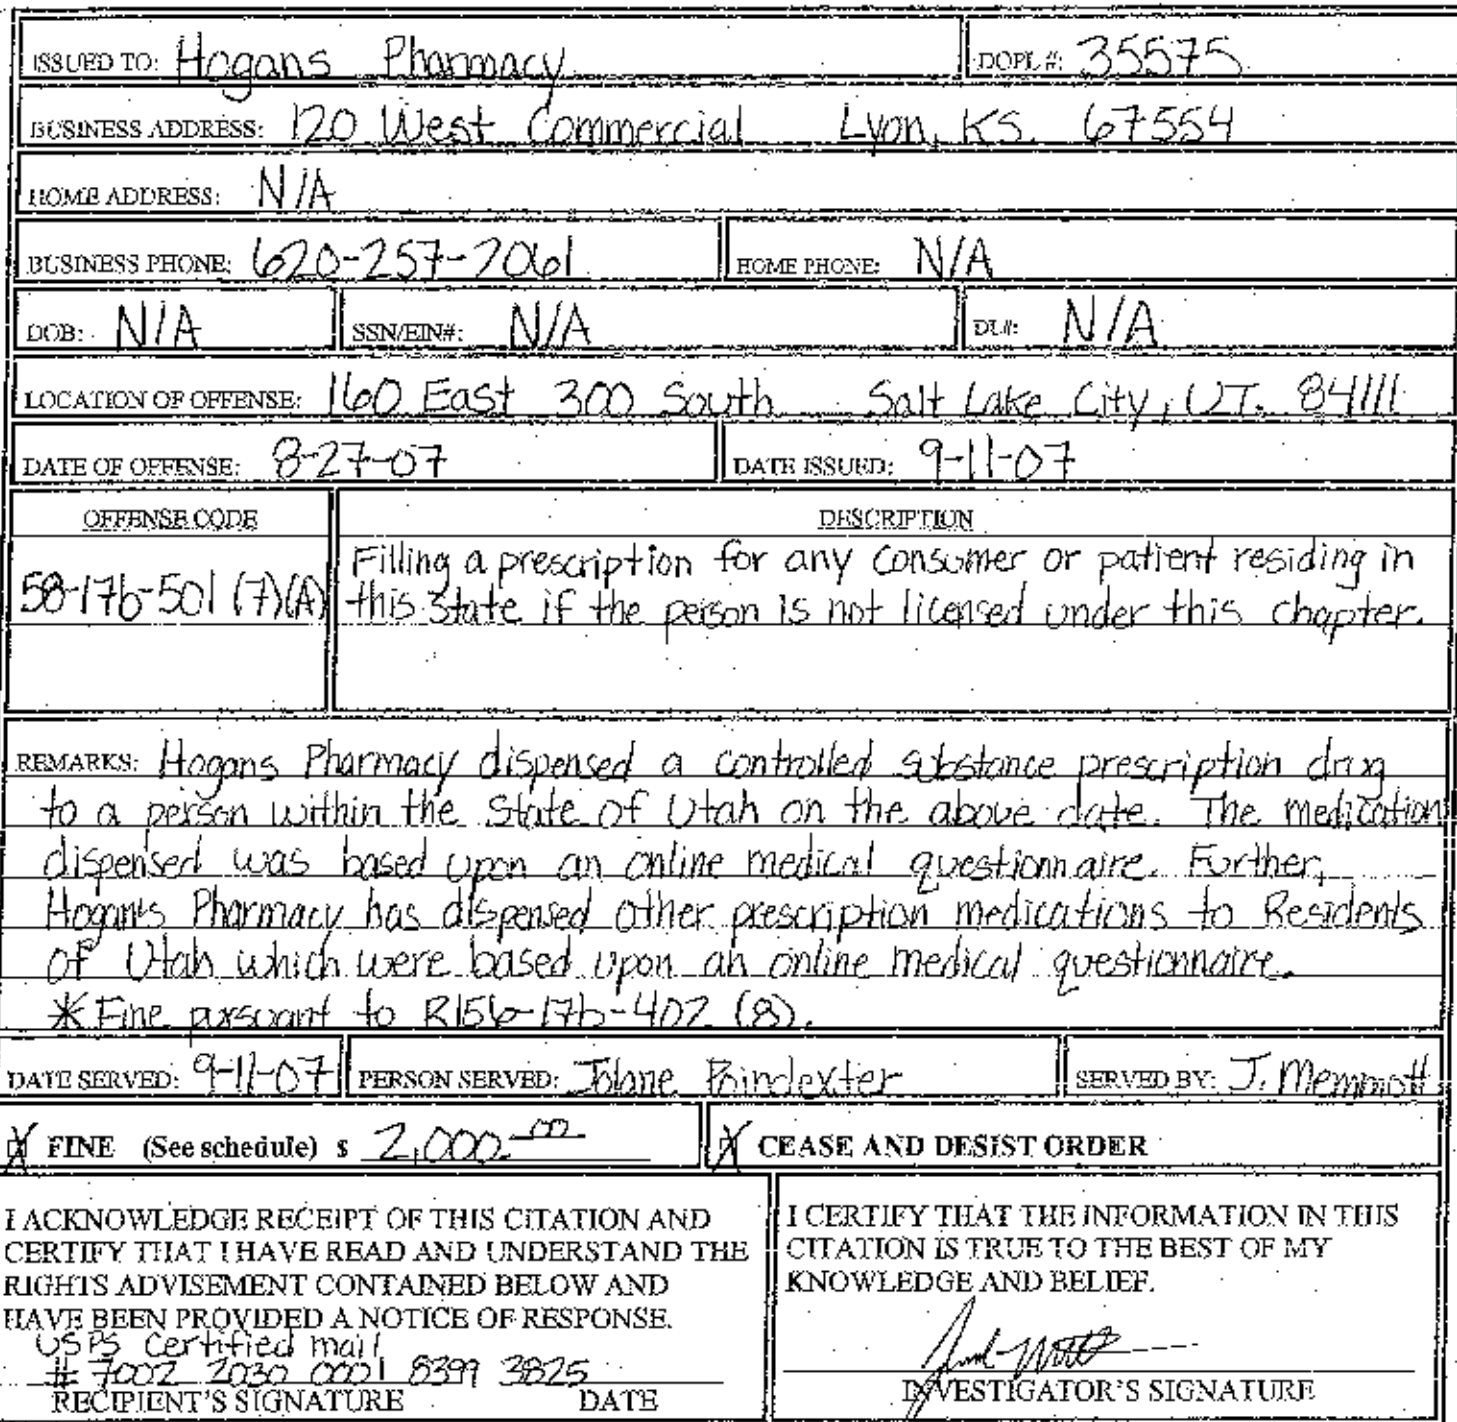 ISSUED TO: Hogans Pharmacy DOPL #: 35575
BUSINESS ADDRESS: 120 West Commercial Lyon, KS. 67554
HOME ADDRESS: N/A
BUSINESS PHONE: 620-257-2061 HOME PHONE: N/A
DOB: N/A SSN/EIN#: N/A DL#: N/A
LOCATION OF OFFENSE: 160 East 300 South Salt Lake City, UT. 84111
DATE OF OFFENSE: 8-27-07 DATE ISSUED: 9-11-07
OFFENSE CODE DESCRIPTION
58-17b-501 (7)(A) Filling a prescription for any consumer or patient residing in
this State if the person is not licensed under this chapter.
REMARKS: Hogans Pharmacy dispensed a controlled substance prescription drug
to a person within the State of Utah on the above date. The medication
dispensed was based upon an online medical questionnaire. Further,
Hogans Pharmacy has dispensed other prescription medications to Residents
of Utah which were based upon an online medical questionnaire.
* Fine pursuant to R156-17b-402 (8).
DATE SERVED: 9-11-07 PERSON SERVED: Jolane Poindexter SERVED BY: J. Memmott
X FINE (See schedule) $ 2,000.00 X CEASE AND DESIST ORDER
I ACKNOWLEDGE RECEIPT OF THIS CITATION AND
CERTIFY THAT I HAVE READ AND UNDERSTAND THE
RIGHTS ADVISEMENT CONTAINED BELOW AND
HAVE BEEN PROVIDED A NOTICE OF RESPONSE.
USPS Certified mail
# 7002 2030 0001 8399 3825
RECIPIENT'S SIGNATURE DATE
I CERTIFY THAT THE INFORMATION IN THIS
CITATION IS TRUE TO THE BEST OF MY
KNOWLEDGE AND BELIEF.
INVESTIGATOR'S SIGNATURE